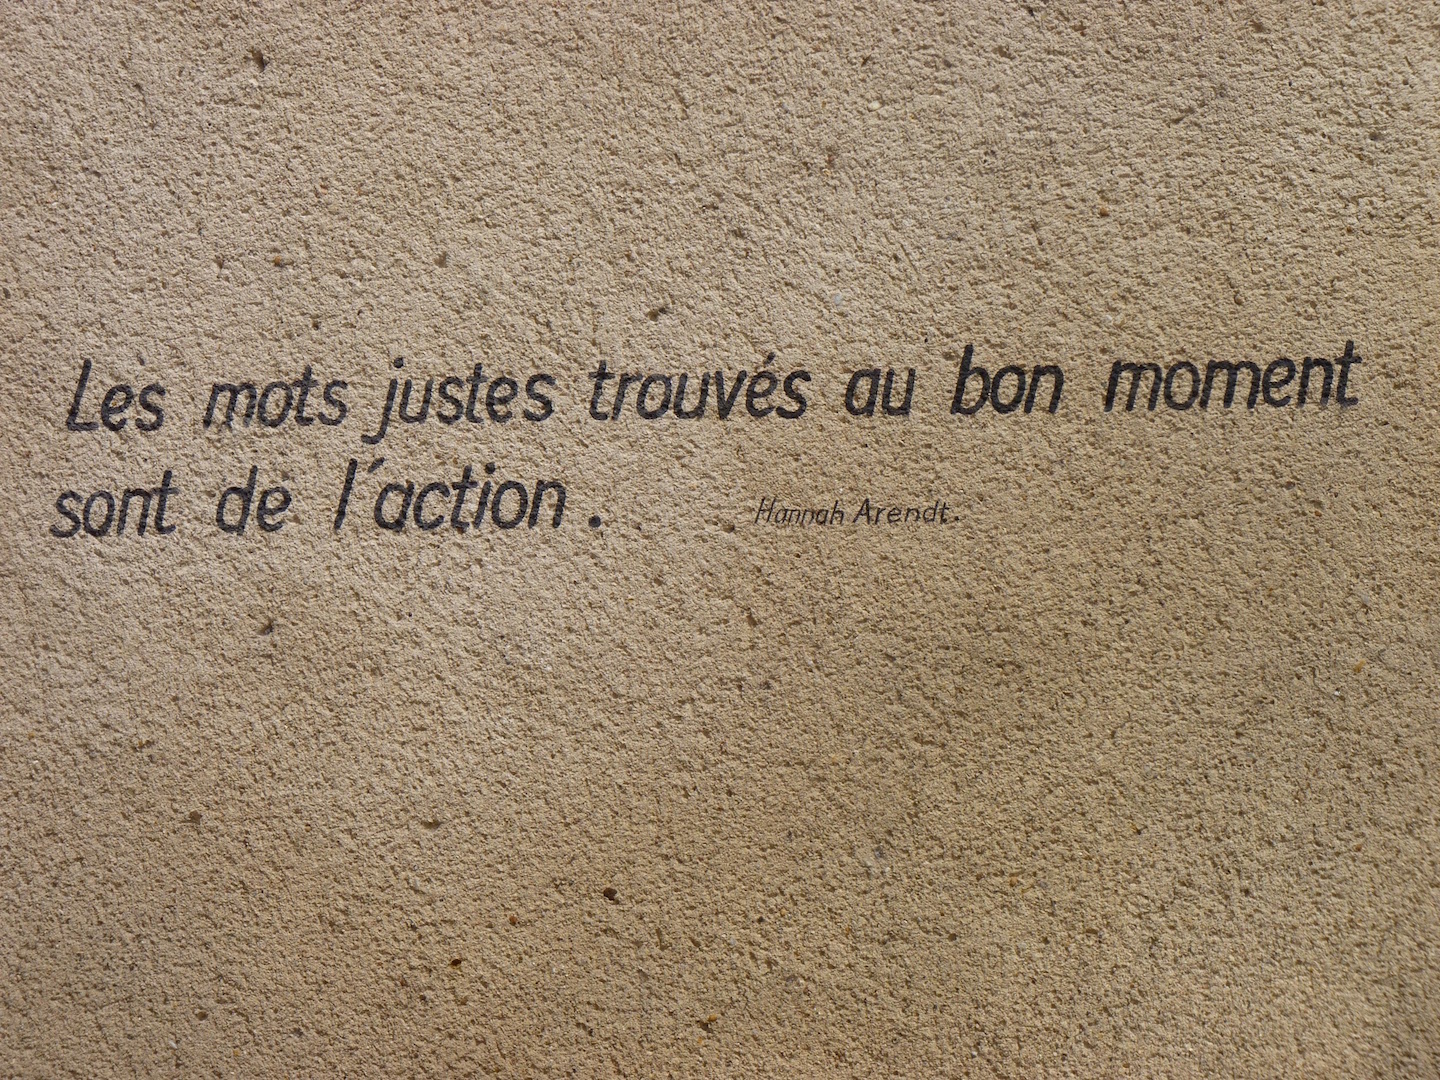 Les mots justes trouvés au bon moment
sont de l'action.
Hannah Arendt.